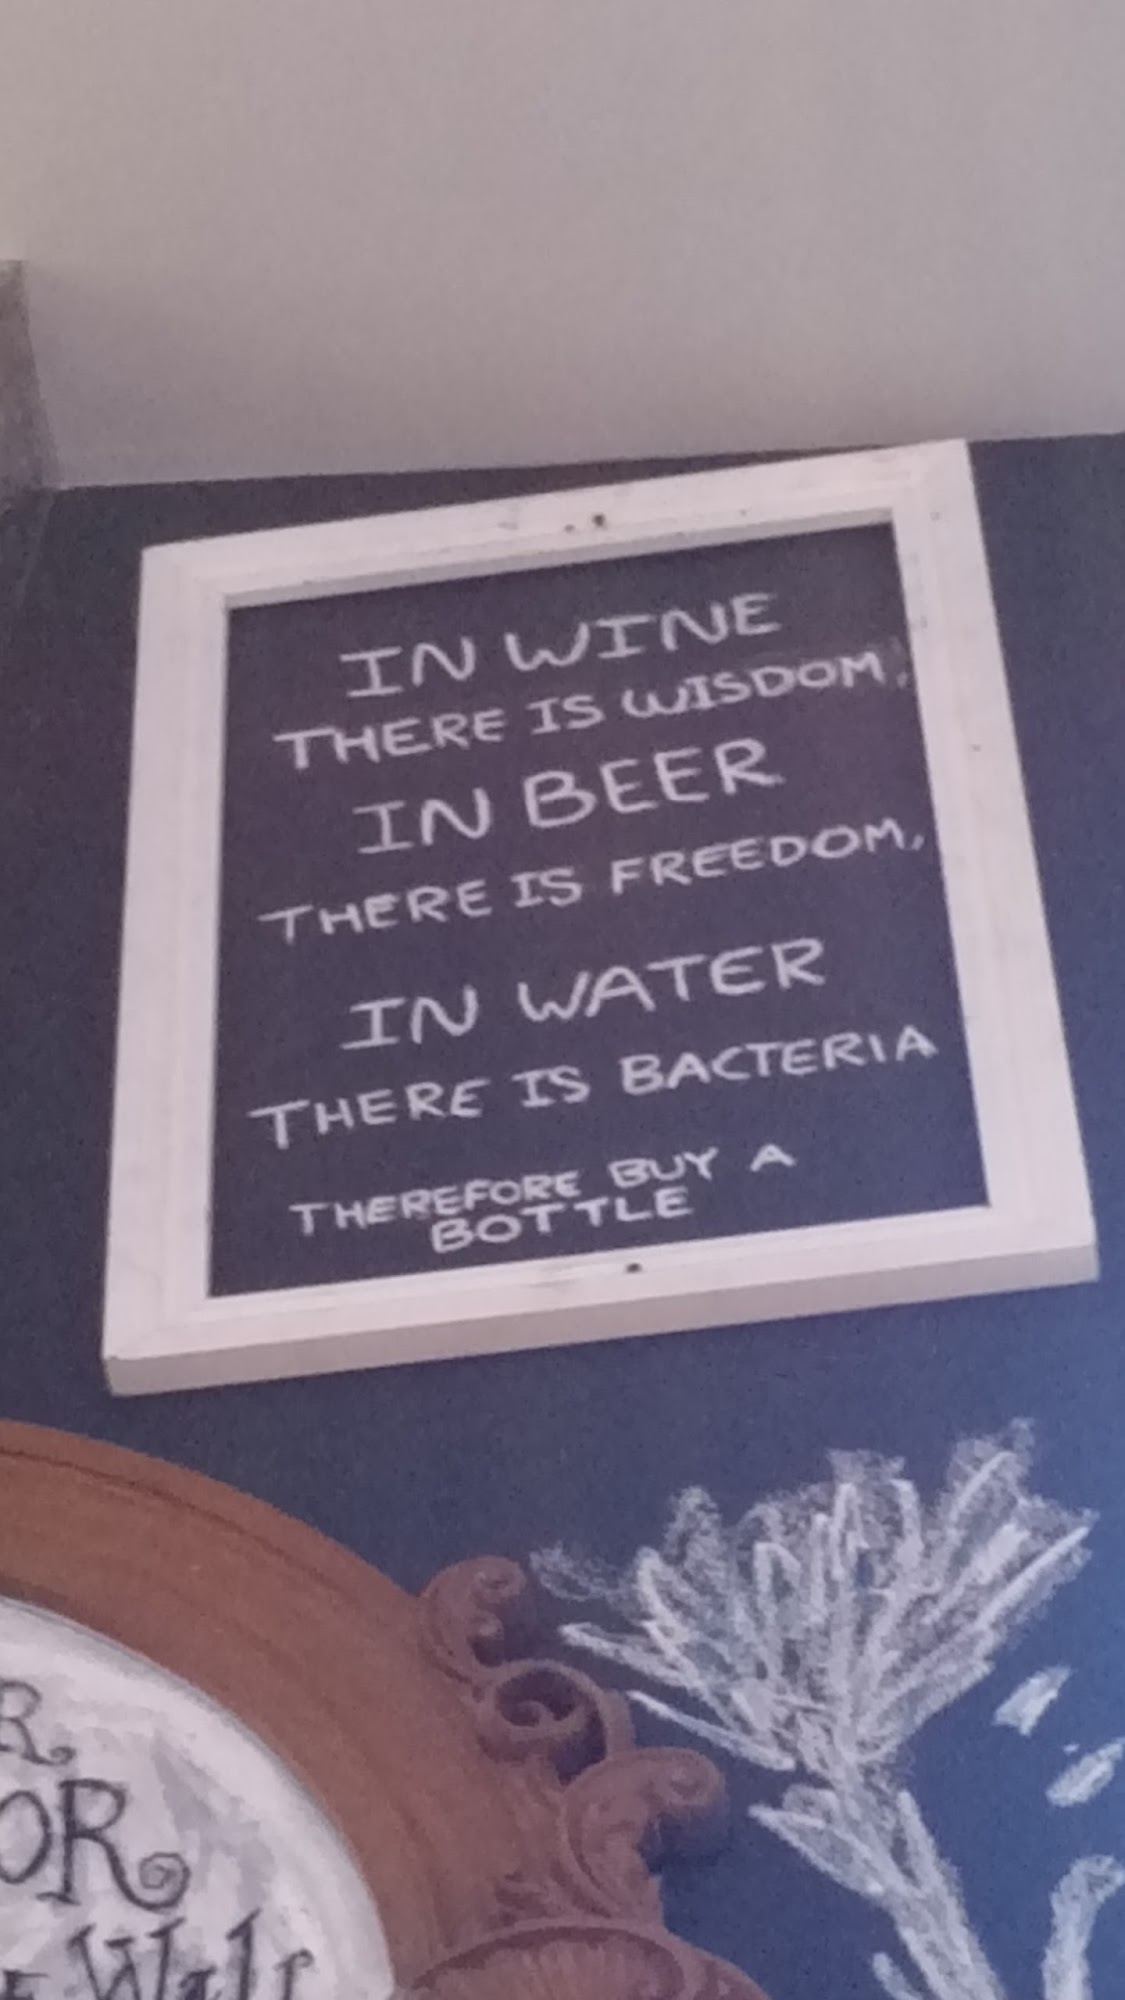 IN WINE
THERE IS WISDOM,
IN BEER
THERE IS FREEDOM,
IN WATER
THERE IS BACTERIA
THEREFORE BUY A
BOTTLE